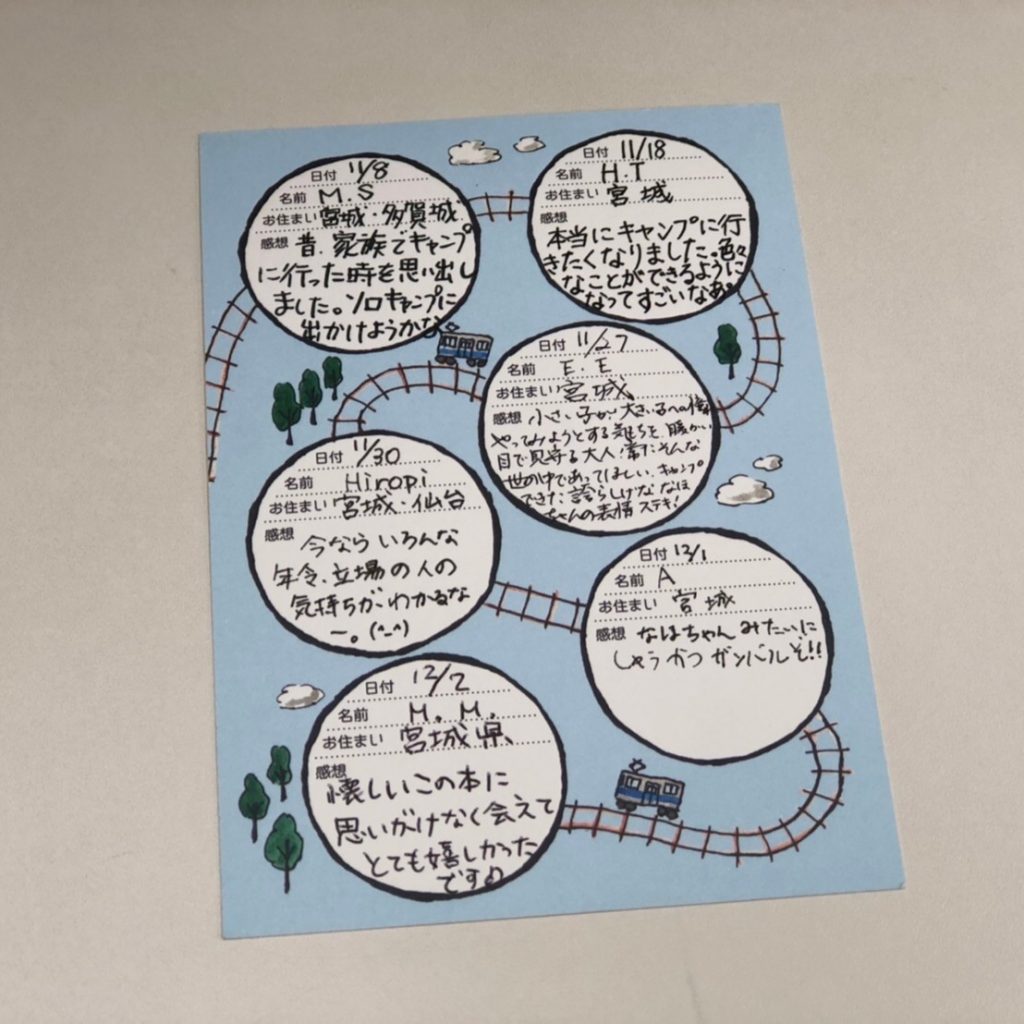 日付 11/8
名前 M.S
お住まい 宮城・多賀城
感想 昔、家族でキャンプ
に行った時を思い出し
ました。ソロキャンプに
出かけようかな
日付 11/18
名前 H.T
お住まい 宮城
感想
本当にキャンプに行
きたくなりました。色々
なことができるように
なってすごいなあ。
日付 11/27
名前 E.E
お住まい 宮城
感想 小さい子が大きい子への
やってみようとする気もちを、暖かい
目で見守る大人!常にそんな
世の中であってほしい。キャンプ
できた誇らしげななほ
ちゃんの表情ステキ!
日付 11/30
名前 Hiropi
お住まい 宮城・仙台
感想 今ならいろんな
年令、立場の人の
気持ちがわかるな
ー。(^_^)
日付 12/1
名前 A
お住まい 宮城
感想 なほちゃんみたいに
しゃうかつガンバルぞ!!
日付 12/2
名前 M.M.
お住まい 宮城県
感想
懐しいこの本に
思いがけなく会えて
とても嬉しかった
です♪